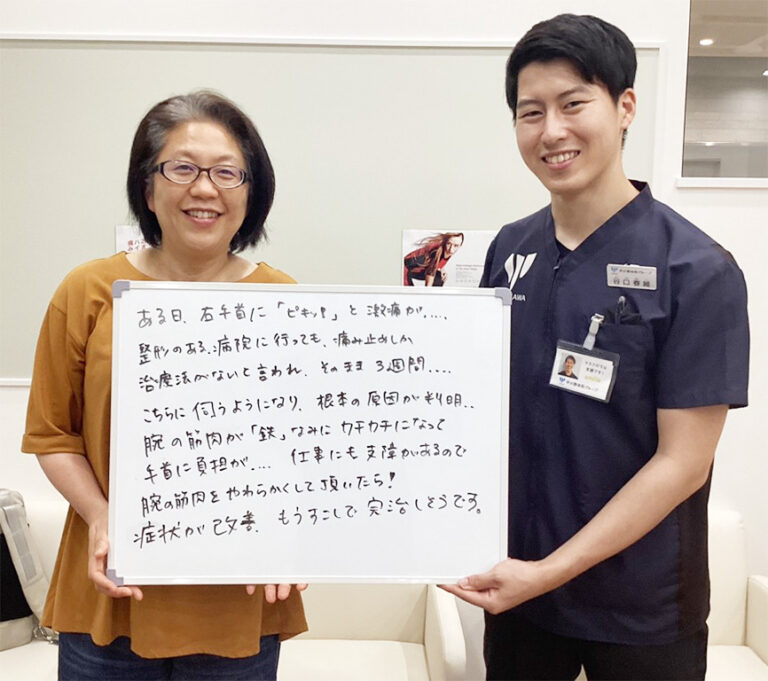 ある日、右手首に「ピキッ!」と激痛が....
整形のある、病院に行っても、痛み止めしか
治療法がないと言われ、そのまま3週間....
こちらに伺うようになり、根本の原因が判明..
腕の筋肉が「鉄」なみにカチカチになって
手首に負担が.... 仕事にも支障があるので
腕の筋肉をやわらかくして頂いたら!
症状が改善、もうすこしで完治しそうです。